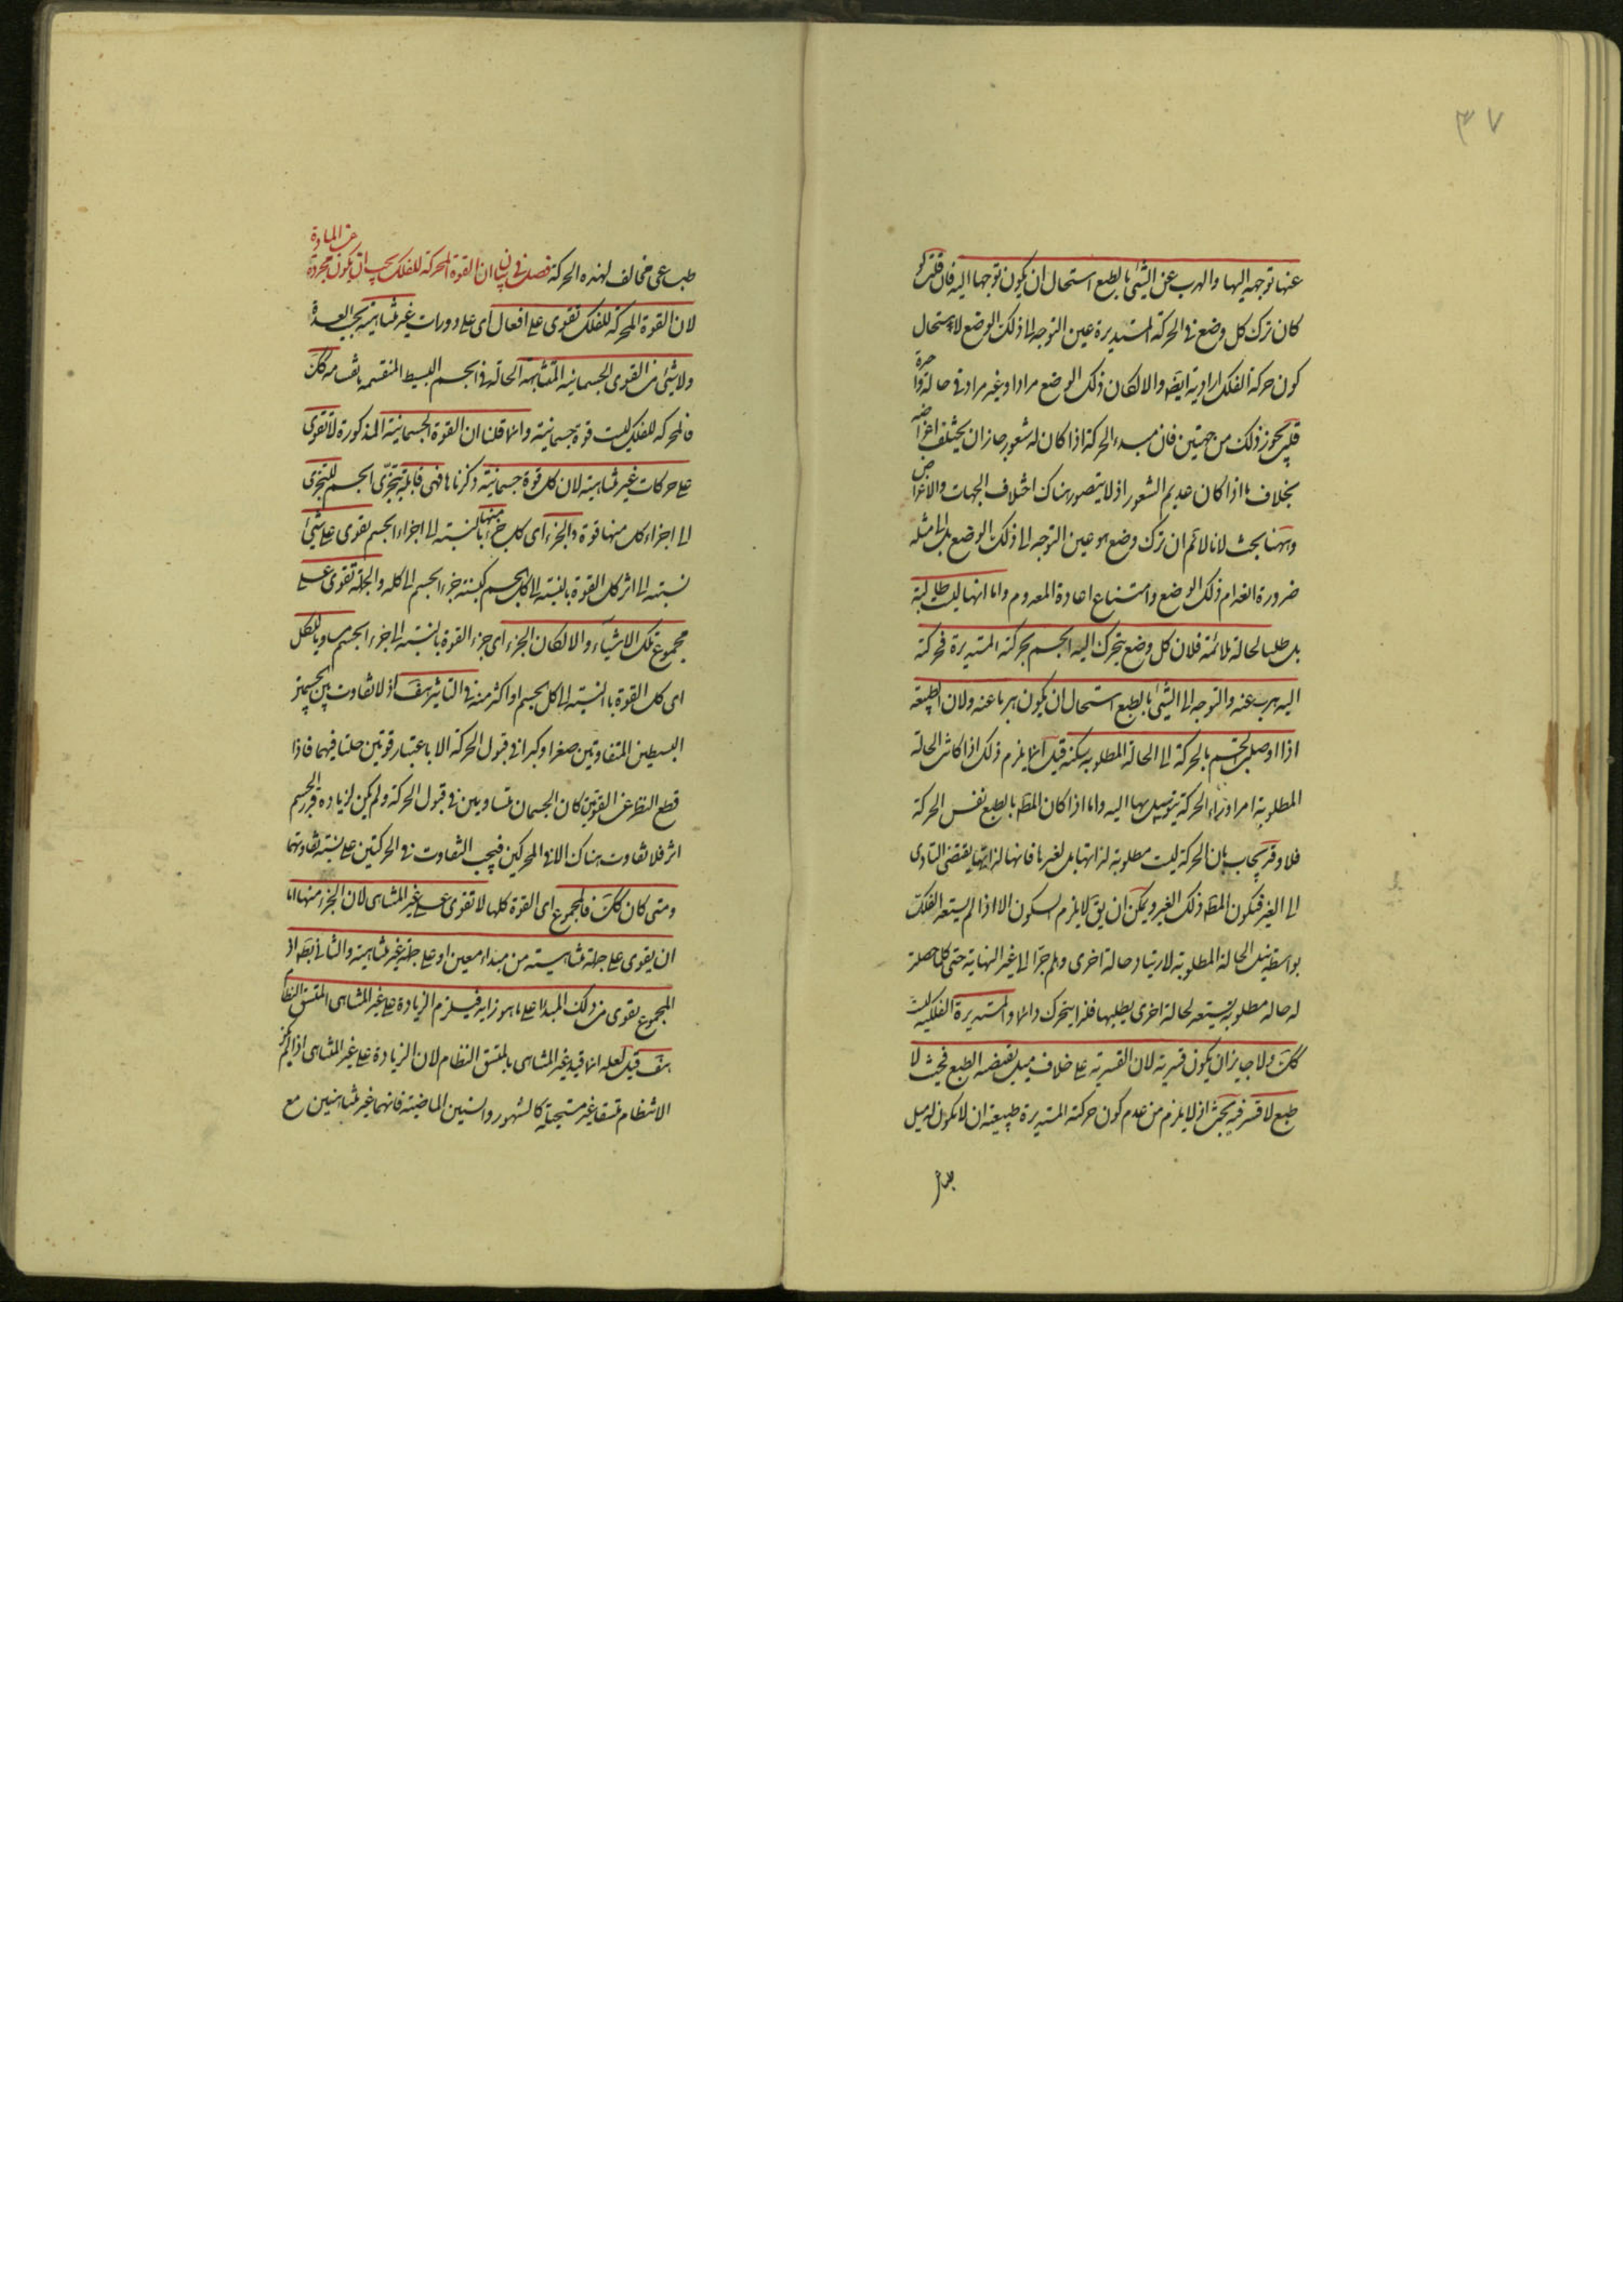 ٣٧
عنها توجه اليها والهرب عن الشئ بالطبع استحال ان يكون توجها اليه فان قلت لو
كان ترك كل وضع فى الحركة المستديرة عين التوجه الى ذلك الوضع لاستحال
كون حركة الفلك ارادية ايضا والا لكان ذلك الوضع مرادا وغير مراد فى حالة واحدة
قلت يجوز ذلك من جهتين فان مبدء الحركة اذا كان له شعور جاز ان يختلف اغراضه
بخلاف ما اذا كان عديم الشعور اذ لا يتصور هناك اختلاف الجهات والاغراض
وههنا بحث لانا لا نم ان ترك وضع هو عين التوجه الى ذلك الوضع بل الى مثله
ضرورة انعدام ذلك الوضع وامتناع اعادة المعدوم واما انها ليست طالبة
بل طلبا لحالة ملائمة فلان كل وضع يتحرك اليه الجسم بحركته المستديرة فحركته
اليه هرب عنه والتوجه الى الشئ بالطبع استحال ان يكون هربا عنه ولان الطبيعة
اذا اوصلت الجسم بالحركة الى الحالة المطلوبة سكنته قيل انما يلزم ذلك اذا كانت الحالة
المطلوبة امرا وراء الحركة يتوسل بها اليه واما اذا كان المط بالطبع نفس الحركة
فلا وقد يجاب بان الحركة ليست مطلوبة لذاتها بل لغيرها فانها لذاتها يقتضى التادى
الى الغير فيكون المط ذلك الغير ويمكن ان يق لا يلزم السكون الا اذا لم يستعد الفلك
بواسطة نيل الحالة المطلوبة لارتياد حالة اخرى وهلم جرا الى غير النهاية حتى كلما حصلت
له حالة مطلوبة يستعد لحالة اخرى يطلبها فلذا يتحرك دائما والمستديرة الفلكية ليست
كك ولا جايز ان يكون قسرية لان القسرية على خلاف ميل يقتضيه الطبع فحيث لا
طبع لا قسر فيه بحث اذ لا يلزم من عدم كون حركته المستديرة طبيعية ان لا يكون له ميل
طباع
طباعى مخالف لهذه الحركة فصل فى بيان ان القوة المحركة للفلك يجب ان يكون مجردة
عن المادة
لان القوة المحركة للفلك تقوى على افعال اى على دورات غير متناهية بحسب العدة
ولا شئ من القوى الجسمانية المتشابهة الحالة فى الجسم البسيط المنقسمة بانقسامه كك
فالمحركة للفلك ليست قوة جسمانية وانما قلنا ان القوة الجسمانية المذكورة لا تقوى
على حركات غير متناهية لان كل قوة جسمانية ذكرناها فهى قابلة بتجزى الجسم للتجزى
الى اجزاء كل منها قوة والجزء اى كل جزء منها بالنسبة الى اجزاء الجسم يقوى على شئ
نسبته الى اثر كل القوة بالنسبة الى كل الجسم كنسبة جزء الجسم الى كله والجملة تقوى على
مجموع تلك الاشياء والا لكان الجزء اى جزء القوة بالنسبة الى جزء الجسم مساويا للكل
اى كل القوة بالنسبة الى كل الجسم او اكثر منه فى التاثير هف اذ لا تفاوت بين الجسمين
البسيطين المتفاوتين صغرا وكبرا فى قبول الحركة الا باعتبار قوتين حلتا فيهما فاذا
قطع النظر عن القوتين كان الجسمان متساويين فى قبول الحركة ولم يكن لزيادة قدر الجسم
اثر فلا تفاوت هناك الا فى المحركين فيجب التفاوت فى الحركتين على نسبة تفاوتهما
ومتى كان كك فالمجموع اى القوة كلها لا تقوى على غير المتناهى لان الجزء منها اما
ان يقوى على جملة متناهية من مبداء معين او على جملة غير متناهية والثانى بط اذ
المجموع يقوى من ذلك المبداء على ما هو زايد فيلزم الزيادة على غير المتناهى المتسق النظام
هف قيل لعله انما قيد غير المتناهى بالمتسق النظام لان الزيادة على غير المتناهى اذا لم يكن
الانتظام متسقا غير مستحيلة كالشهور والسنين الماضية فانهما غير متناهيين مع